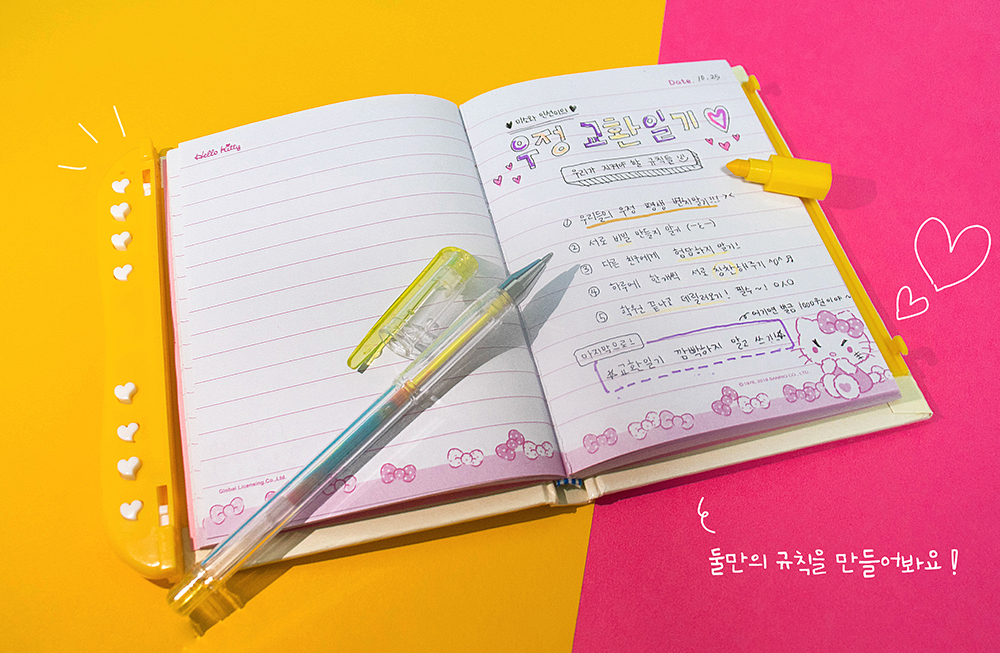 Hello Kitty
Global Licensing Co.,Ltd.
Date. 10.25
♥ 미소와 민선이의 ♥
우정 교환일기
우리가 지켜야 할 규칙들
① 우리들의 우정 평생 변치않기!!! ><
② 서로 비밀 만들지 않기 (-ㄷ-)
③ 다른 친구에게 험담하지 않기!
④ 하루에 한개씩 서로 칭찬해주기 ^0^
⑤ 학원 끝나고 데릴러보기! 필수~! 0人0
어기면 벌금 1000원이야~
마지막으로!
*교환일기 깜빡하지 말고 쓰기!*
© 1976, 2019 SANRIO CO., LTD.
둘만의 규칙을 만들어봐요!